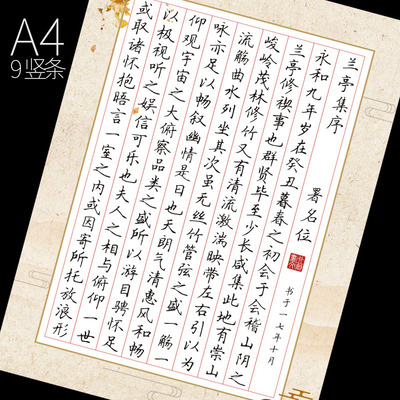 A4
9竖条
兰亭集序
永和九年岁在癸丑暮春之初会于会稽山阴之
兰亭修禊事也群贤毕至少长咸集此地有崇山
峻岭茂林修竹又有清流激湍映带左右引以为
流觞曲水列坐其次虽无丝竹管弦之盛一觞一
咏亦足以畅叙幽情是日也天朗气清惠风和畅
仰观宇宙之大俯察品类之盛所以游目骋怀足
以极视听之娱信可乐也夫人之相与俯仰一世
或取诸怀抱晤言一室之内或因寄所托放浪形
署名位
书于一七年十月